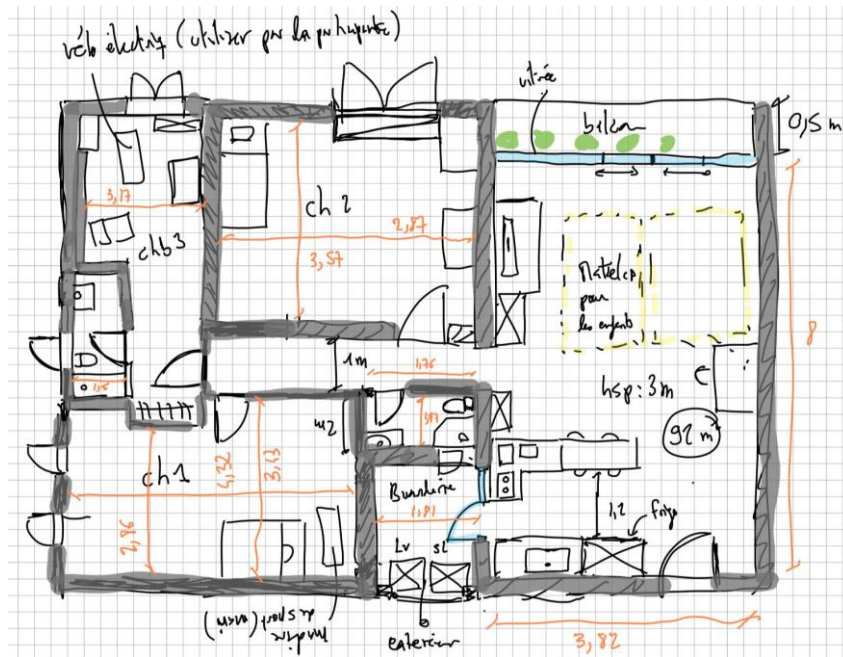 vélo électriq (utiliser par la
vitrée
balcon
0,5 m
3,17
ch 2
2,87
3,57
chb3
Matelas
pour
les enfants
8
1m
1,76
1,5
hsp: 3 m
92 m²
ch1
4,32
3,13
2,86
Buanderie
1,81
1,2
frigo
Lv
SL
exterieur
(mari)
3,82